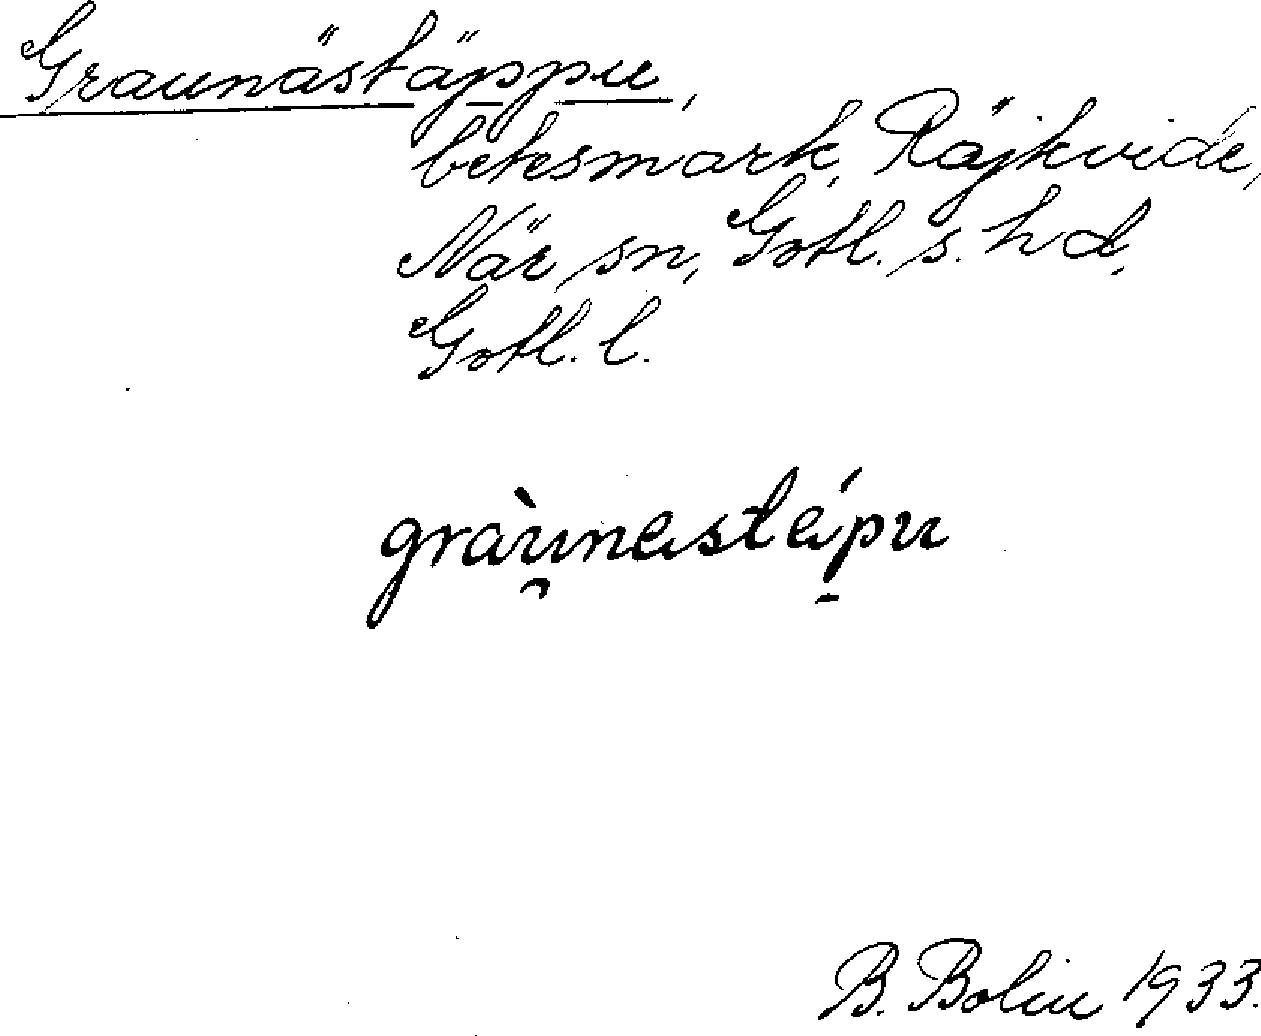 Graunästäppu,
betesmark, Räjkvide,
När sn, Gotl. s. hd,
Gotl. l.
gràu̯nestɛ́pu
B. Bolin 1933.